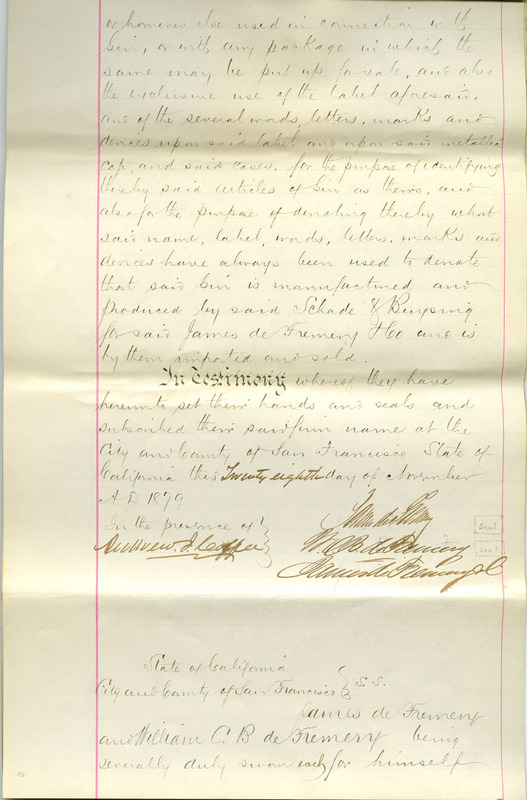 or however else used in connection with
Gin, or with any package in which the
same may be put up for sale, and also
the exclusive use of the label aforesaid,
and of the several words, letters, marks and
devices upon said label and upon said metallic
cap, and said cases, for the purpose of identifying
thereby said articles of Gin as theirs, and
also for the purpose of denoting thereby what
said name, label, words, letters, marks and
devices have always been used to denote
that said Gin is manufactured and
produced by said Schade & Buysing
for said James de Fremery & Co and is
by them imported and sold.
In Testimony whereof, they have
hereunto set their hands and seals and
subscribed their said firm name at the
City and County of San Francisco State of
California this Twenty eighth day of November
A D 1879
In the presence of
James de Fremery Seal
Andrew J. 
W. C. B. de Fremery Seal
James de Fremery & Co
State of California
City and County of San Francisco } S. S.
James de Fremery
and William C. B de Fremery being
severally duly sworn each for himself